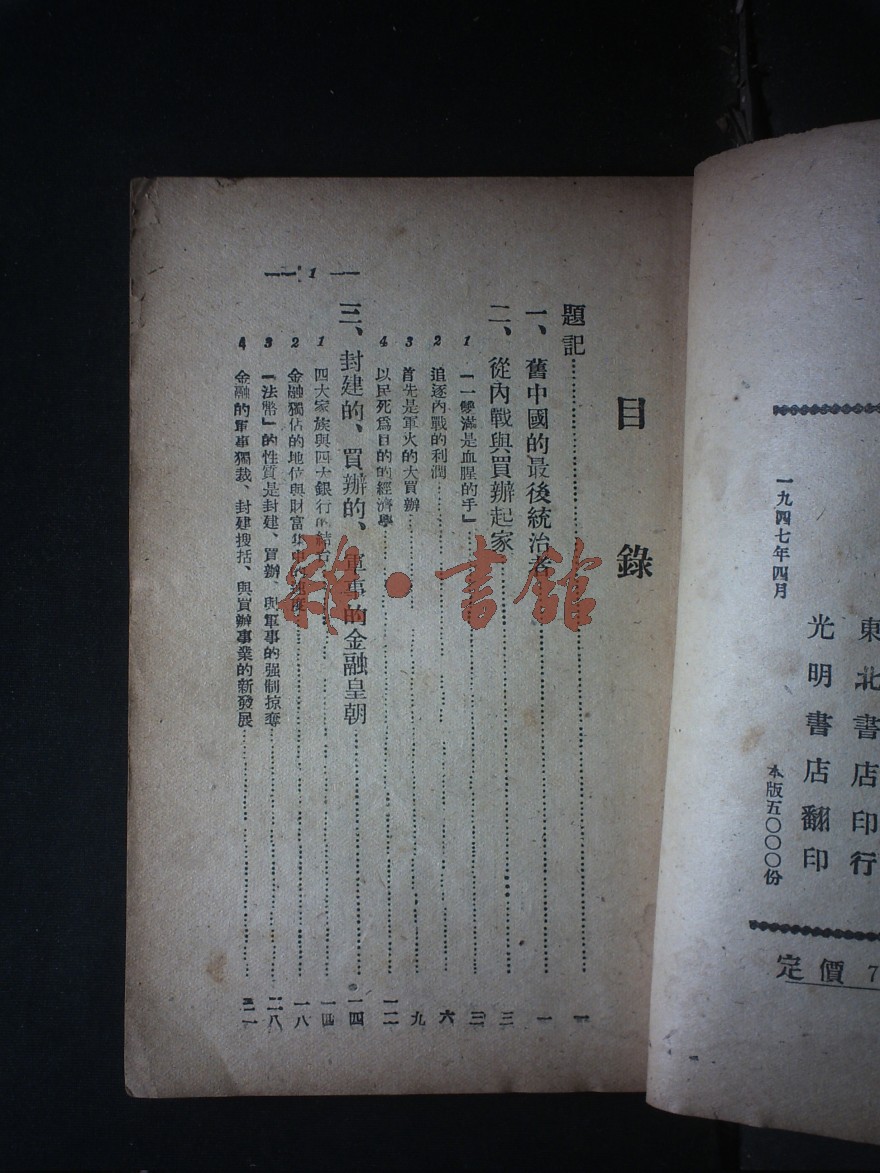 一九四七年四月
東北書店印行
光明書店翻印
本版五〇〇〇份
定價7
目錄
題記 一
一、舊中國的最後統治者 一
二、從內戰與買辦起家 三
1 「一雙滿是血腥的手」 三
2 追逐內戰的利潤 六
3 首先是軍火的大買辦 九
4 以民死爲目的的經濟學 一二
三、封建的、買辦的、軍事的金融皇朝 一四
1 四大家族與四大銀行的結合 一四
2 金融獨佔的地位與財富集中的 一八
3 「法幣」的性質是封建、買辦、與軍事的强制掠奪 二八
4 金融的軍事獨裁、封建搜括、與買辦事業的新發展 三一
— 1 —
雜·書館